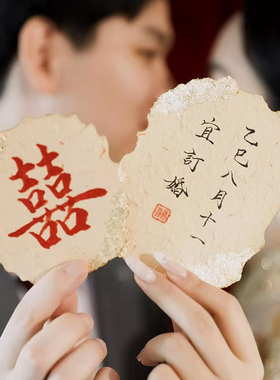 囍
乙巳八月十一
宜訂婚